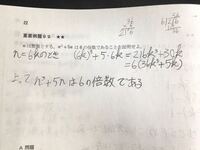 22
重要例題92 ★★
nは整数とする。n³+5nは6の倍数であることを証明せよ。
n=6kのとき (6k)³+5・6k=216k³+30k
=6(36k³+5k)
よって n³+5nは6の倍数である